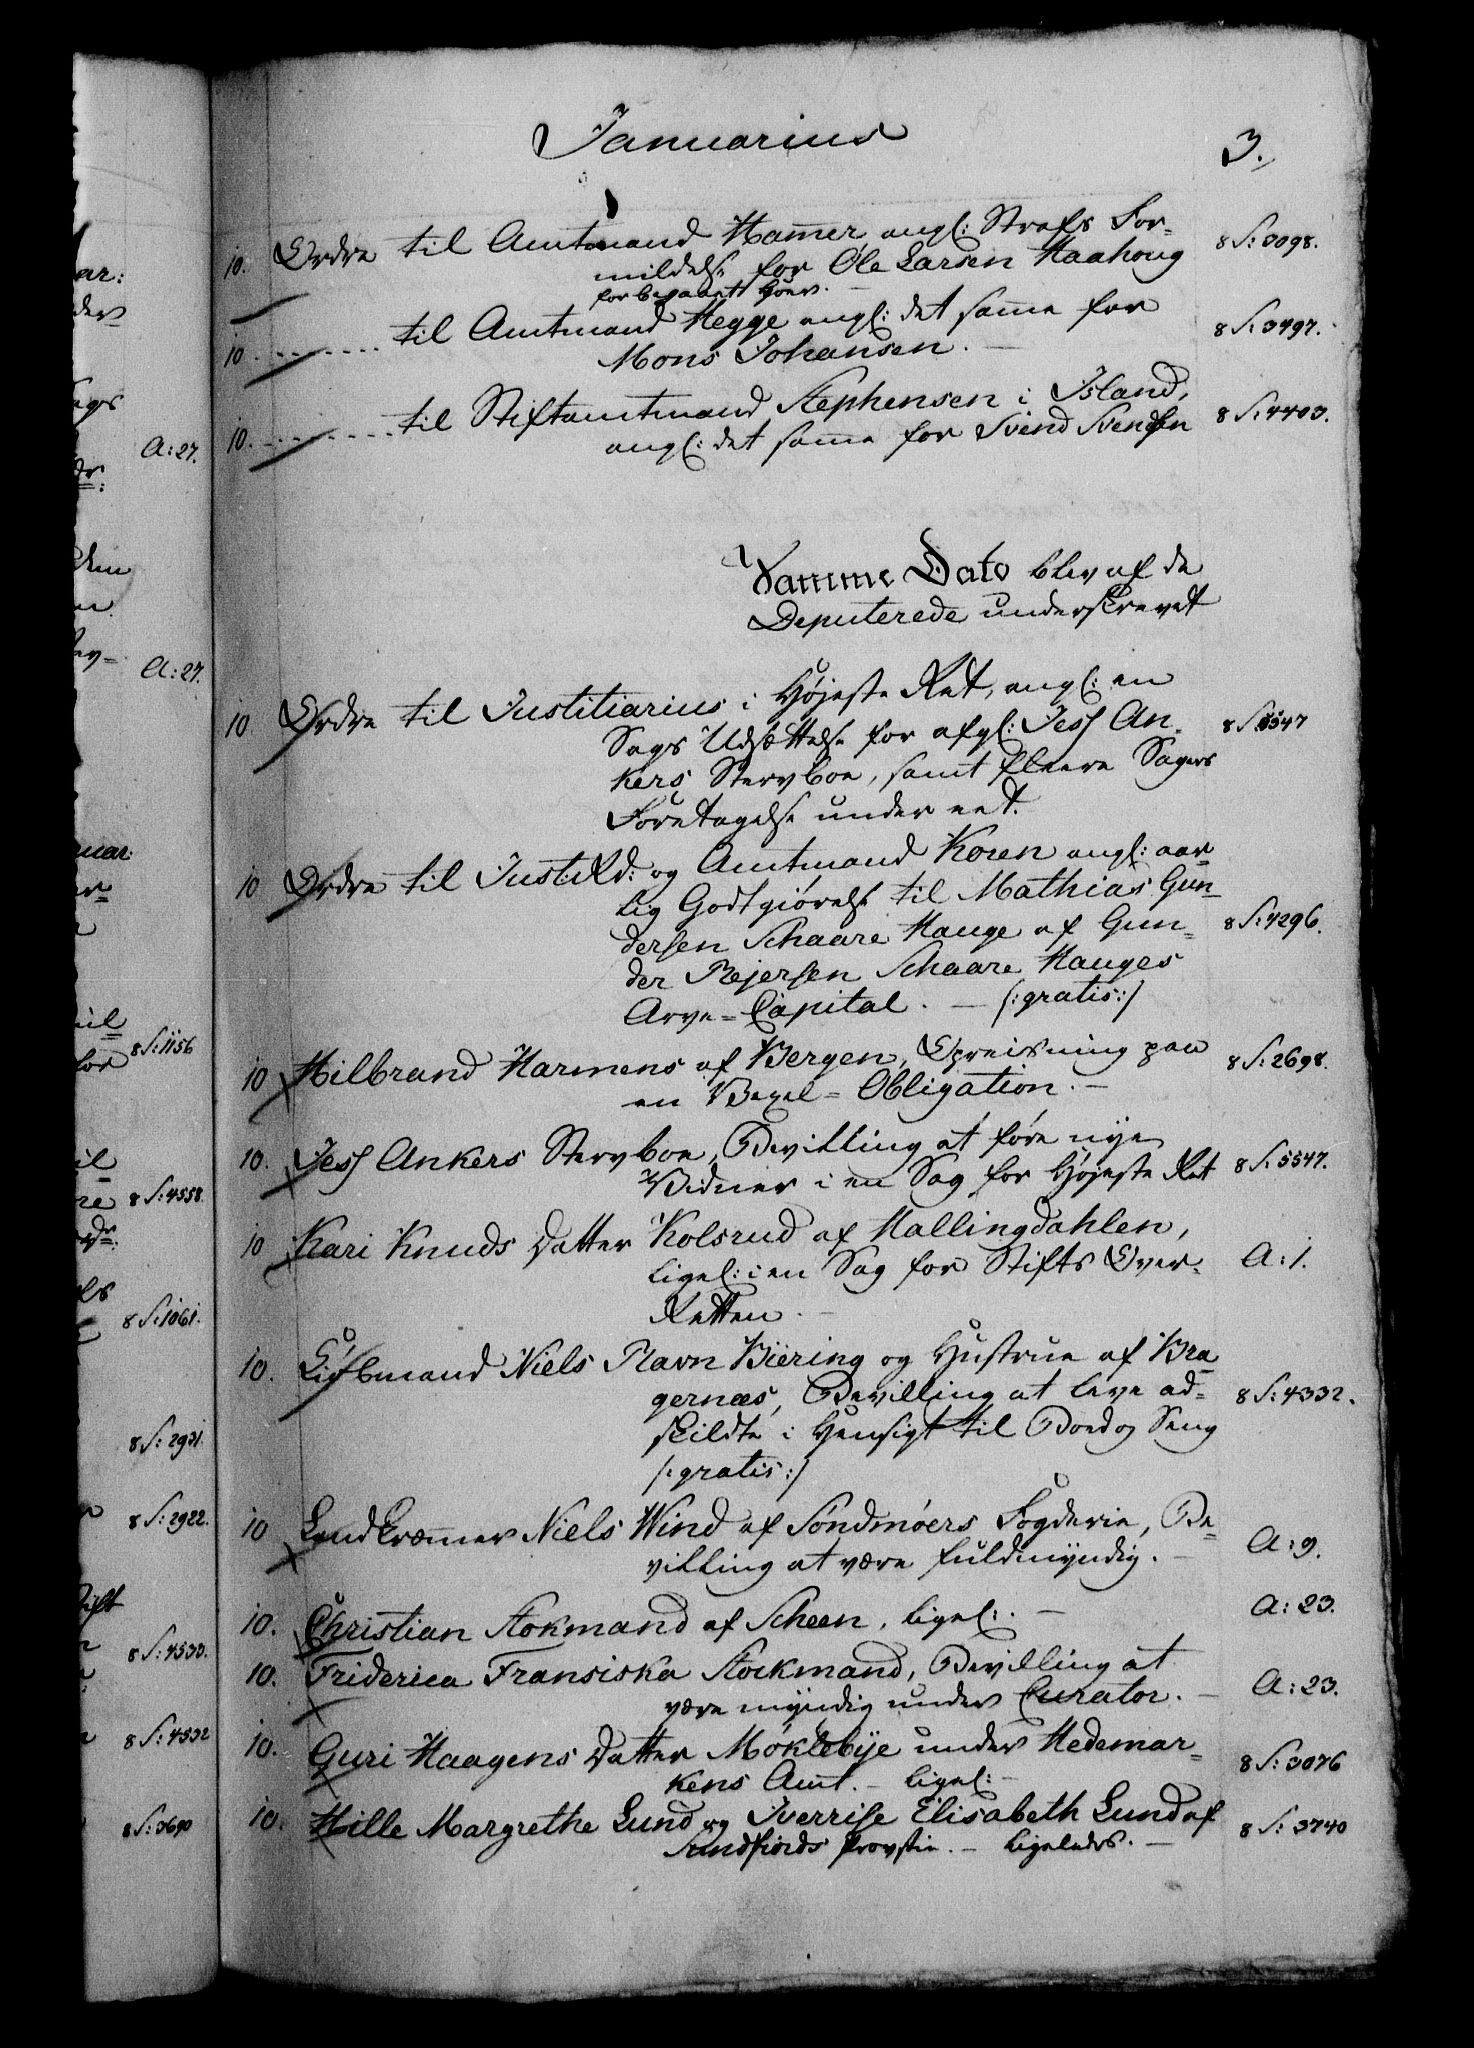 Januarius
3.
10. Ordre til Amtmand Hamer, angl: Strafs For=
mildelse for Ole Larsen Haahoug
for begaaett Hoer.
8 S: 3098.
10 - - - - - til Amtmand Hegge angl: det same for
Mons Johansen. —
8 S: 3497.
10. - - - - - til Stiftamtmand Stephensen i Island,
angl: det same for Svend Svendsen
8 S: 4403.
Samme Dato blev af de
Deputerede underskrevet
10 Ordre til Justitiarius i Højeste Ret, angl: en
Sags Udsættelse for afgl: Jess An-
kers Stervboe, samt fleere Sagers
Foretagelse under eet.
8 S: 5547
10 Ordre til Just: Rd: og Amtmand Koren angl: aar=
lig Godtgiørelse til Mathias Gun=
dersen Schaare Hauge af Gun=
der Rejersen Schaare Hauges
Arve=Capital. — /:gratis:/
8 S: 4296.
10 Hilbrand Harmens af Bergen, Opreisning paa
en Vexel=Obligation. —
8 S: 2698.
10. Jess Ankers Stervboe, Bevilling at føre nye
Vidner i en Sag for Højeste Ret
8 S: 5547.
10 Kari Knuds Datter Kolsrud af Hallingdahlen,
ligel: i en Sag for Stifts Over-
Retten. —
A: 1.
10. Kiøbmand Niels Ravn Biering og Hustrue af Bra
gernæs, Bevilling at leve ad=
skildte i Hensigt til Bord og Seng
/:gratis:/
8 S: 4332.
10 Landkræmer Niels Wind af Søndmøers Fogderie, Be=
villing at være fuldmyndig. —
A: 9.
10. Christian Stokmand af Scheen, ligel:. —
A: 23.
10. Friderica Fransiska Stockmand, Bevilling at
være myndig under Curator. —
A: 23.
10. Guri Haagens Datter Møklebije under Hedemar=
kens Amt. — ligel: —
8 S: 3076
10. Hille Margrethe Lund og Iverrise Elisabeth Lund af
Sundfiords Provstie. — ligeledes. —
8 S: 3740
A: 27.
A: 27.
8 S: 1156
8 S: 4558.
8 S: 1061.
8 S: 2931.
8 S: 2922.
8 S: 4530.
8 S: 4532
8 S: 3690